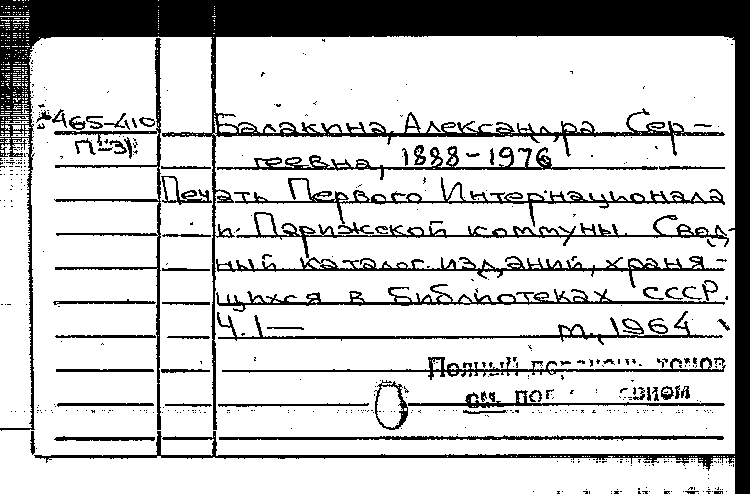 465-410
Балакина, Александра Сер-
геевна, 1888-1976
Печать Первого Интернационала
и Парижской коммуны. Свод-
ный каталог изданий, храня-
щихся в библиотеках СССР.
Ч. 1— М., 1964
Полный томов
см. под